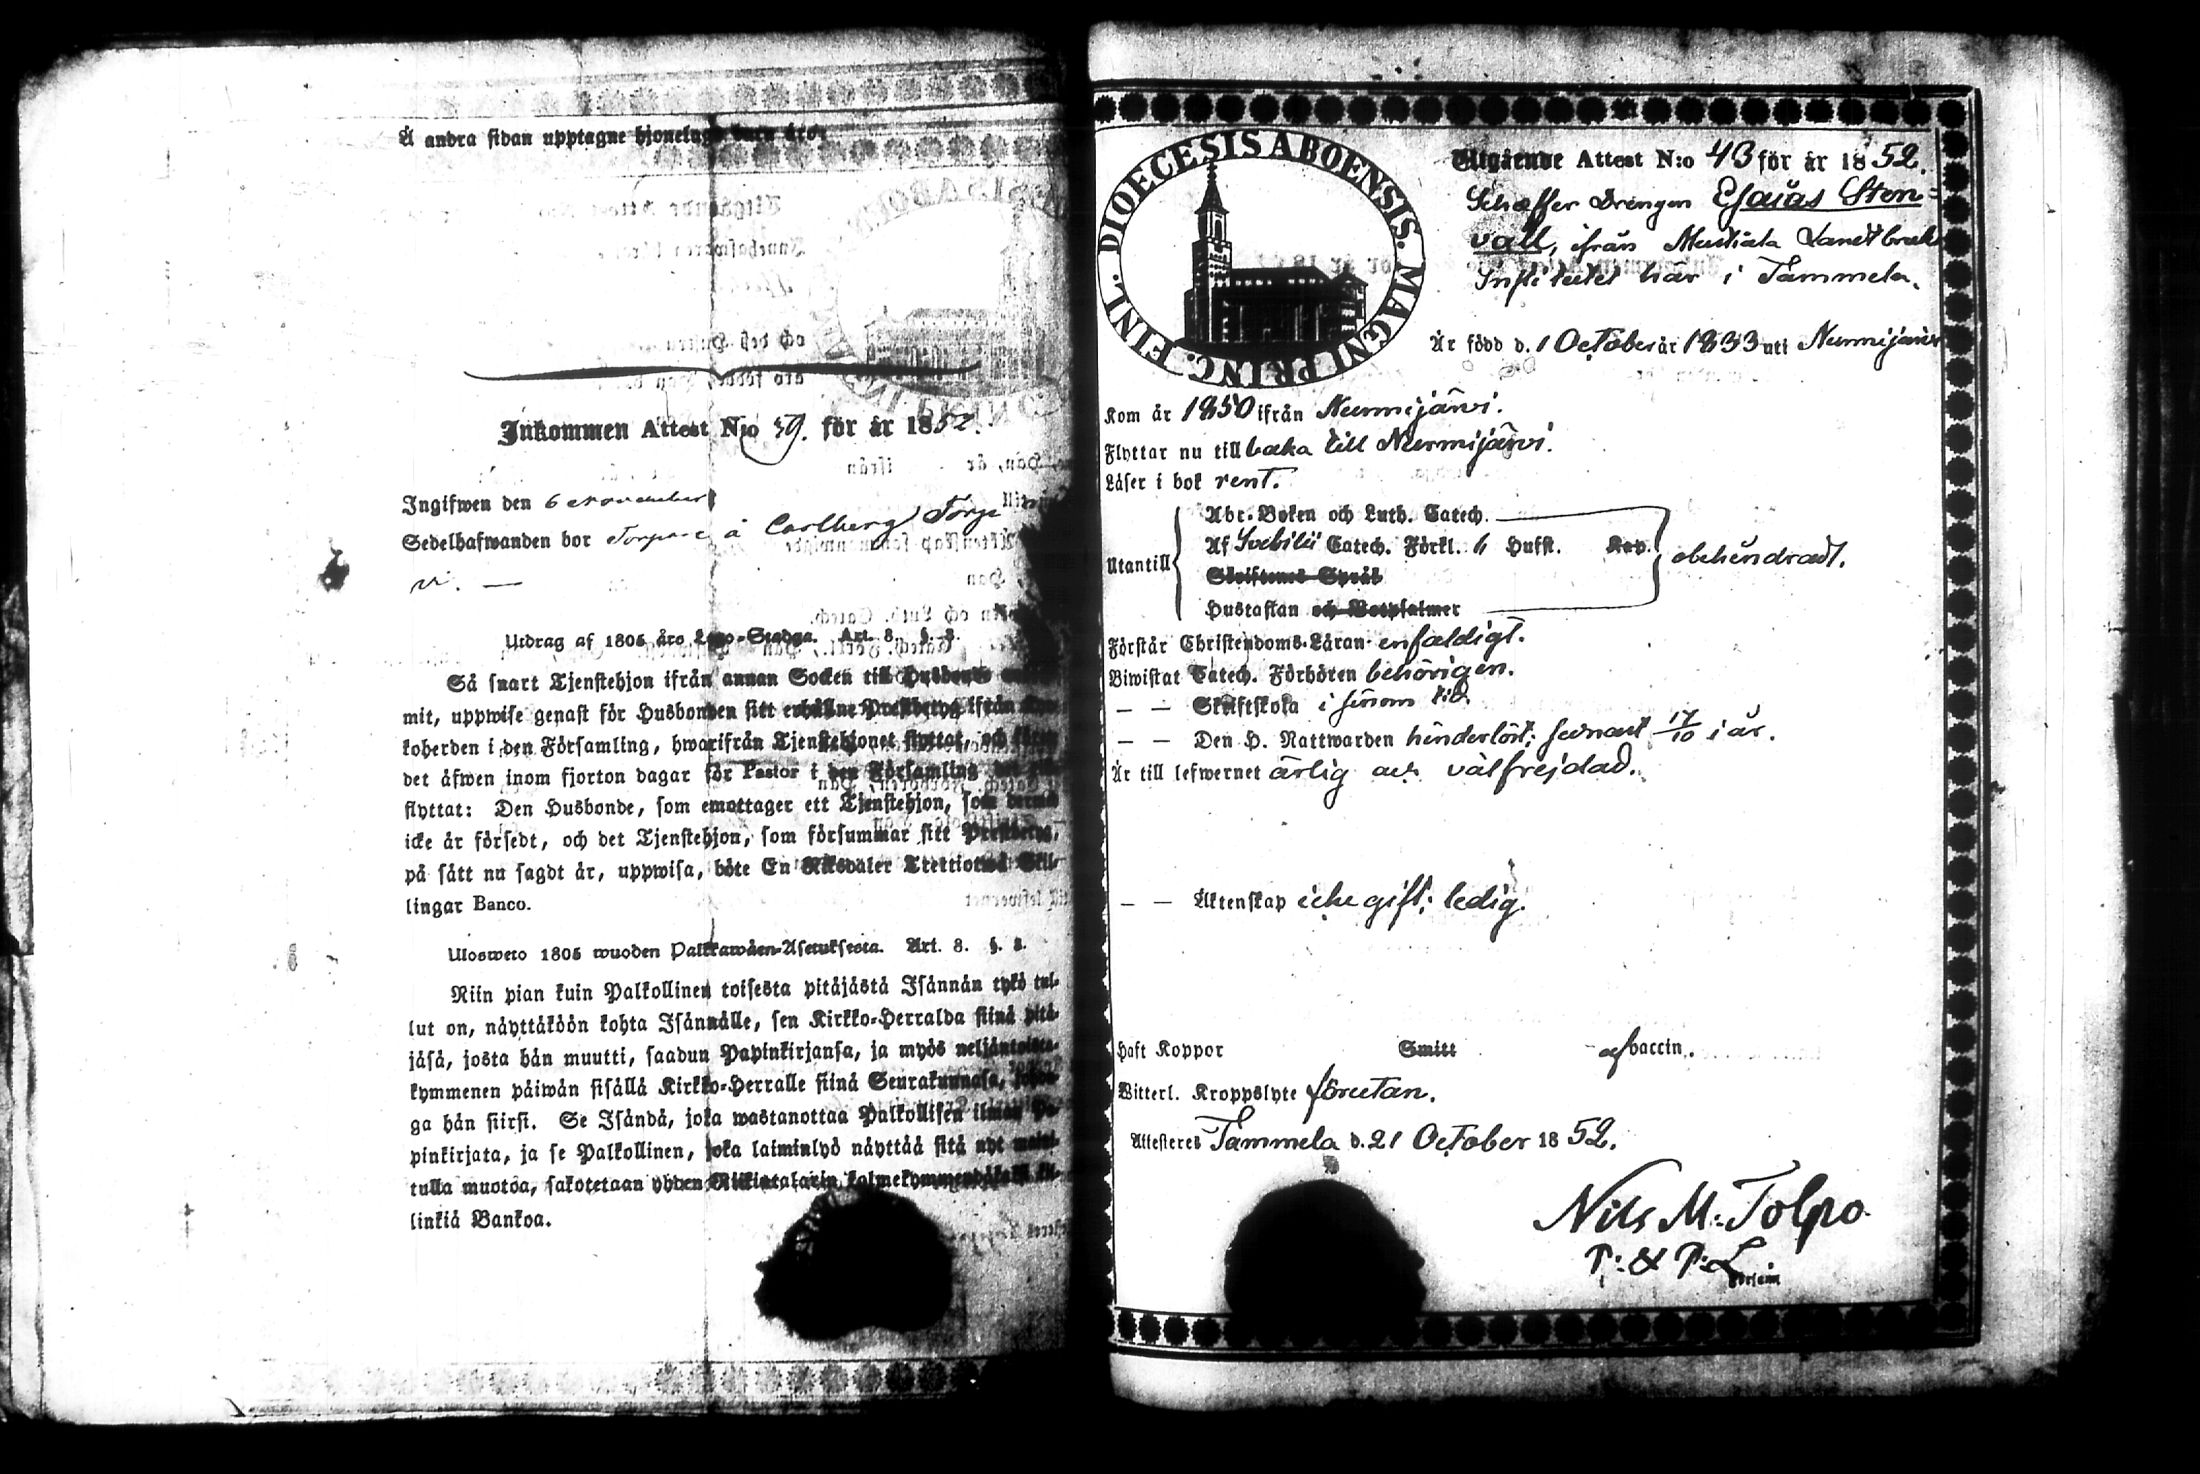 Å andra sidan upptagne hjonelags barn äro:
Inkommen Attest N:o 59. för år 1852.
Ingifwen den 6 November
Sedelhafwanden bor Torpare å Carlberg Torp
Utdrag af 1805 års Lego-Stadga. Art. 8. §. 2.
Så snart Tjenstehjon ifrån annan Socken till Husbonde
mit, uppwise genast för Husbonden sitt erhållne Prestbetyg ifrån
koherden i den Församling, hwarifrån Tjenstehjonet flyttat, och
det äfwen inom fjorton dagar för Pastor i den Församling
flyttat: Den Husbonde, som emottager ett Tjenstehjon, som dermed
icke är försedt, och det Tjenstehjon, som försummar sitt Prestbetyg,
på sätt nu sagdt är, uppwisa, böte En Riksdaler Trettiotwå Skil-
lingar Banco.
Ulosweto 1805 wuoden Palkkawäen-Asetuksesta. Art. 8. §. 2.
Niin pian kuin Palkollinen toisesta pitäjästä Isännän tykö tul-
lut on, näyttäköön kohta Isännälle, sen Kirkko-Herralda siinä pitä-
jäsä, josta hän muutti, saadun Papinkirjansa, ja myös neljäntoista-
kymmenen päiwän sisällä Kirkko-Herralle siinä Seurakunnasa,
ga hän siirsi. Se Isändä, joka wastanottaa Palkollisen ilman Pa-
pinkirjata, ja se Palkollinen, joka laiminlyö näyttää sitä nyt
tulla muotoa, sakotetaan yhden Riikintalarin kolmekymmendäkaksi kil-
linkiä Bankoa.
FINL. DIOECESIS ABOENSIS. MAGNI PRINC.
Utgående Attest N:o 43 för år 1852.
Schæffer Drengen Esaias Sten-
vall, ifrån Mustiala Landtbruks
Institutet här i Tammela.
Är född d. 1 October år 1833 uti Nurmijärvi
Kom år 1850 ifrån Nurmijärvi.
Flyttar nu tillbaka till Nurmijärvi.
Läser i bok rent.
Abc-Boken och Luth. Catech.
Af Svebilii Catech. Förkl. 6 Hufst. Kap.
Utantill obehindradt.
Skriftenes Språk
Hustaflan och Botpsalmer
Förstår Christendoms-Läran enfaldigt.
Biwistat Catech. Förhören behörigen.
— — Skriftskola i sinom tid.
— — Den H. Nattwarden hinderlöst; senast 17/10 i år.
Är till lefwernet ärlig och välfrejdad.
— — Äktenskap icke gift; ledig.
Haft Koppor Smitt af vaccin.
Witterl. Kroppslyte förutan.
Attesteres Tammela d. 21 October 1852.
Nils M: Tolpo
P: & P: L